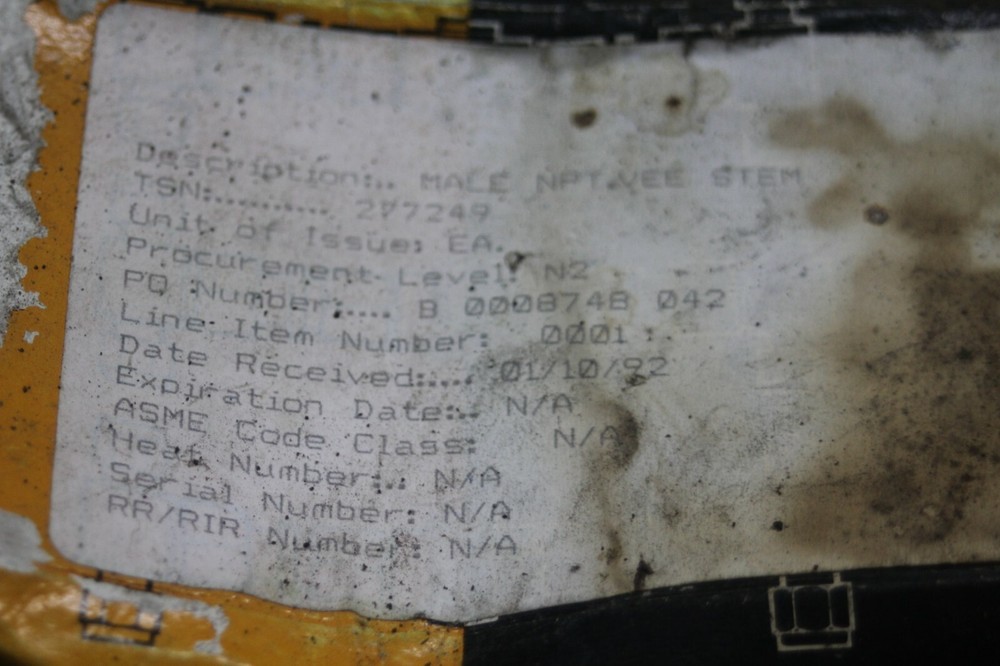 Description:.. MALE NPT.VEE STEM
TSN:.......... 277249
Unit of Issue: EA.
Procurement Level: N2
PO Number:.... B 000874B 042
Line Item Number: 0001
Date Received:.... 01/10/92
Expiration Date:.. N/A
ASME Code Class: N/A
Heat Number:.. N/A
Serial Number: N/A
RR/RIR Number: N/A